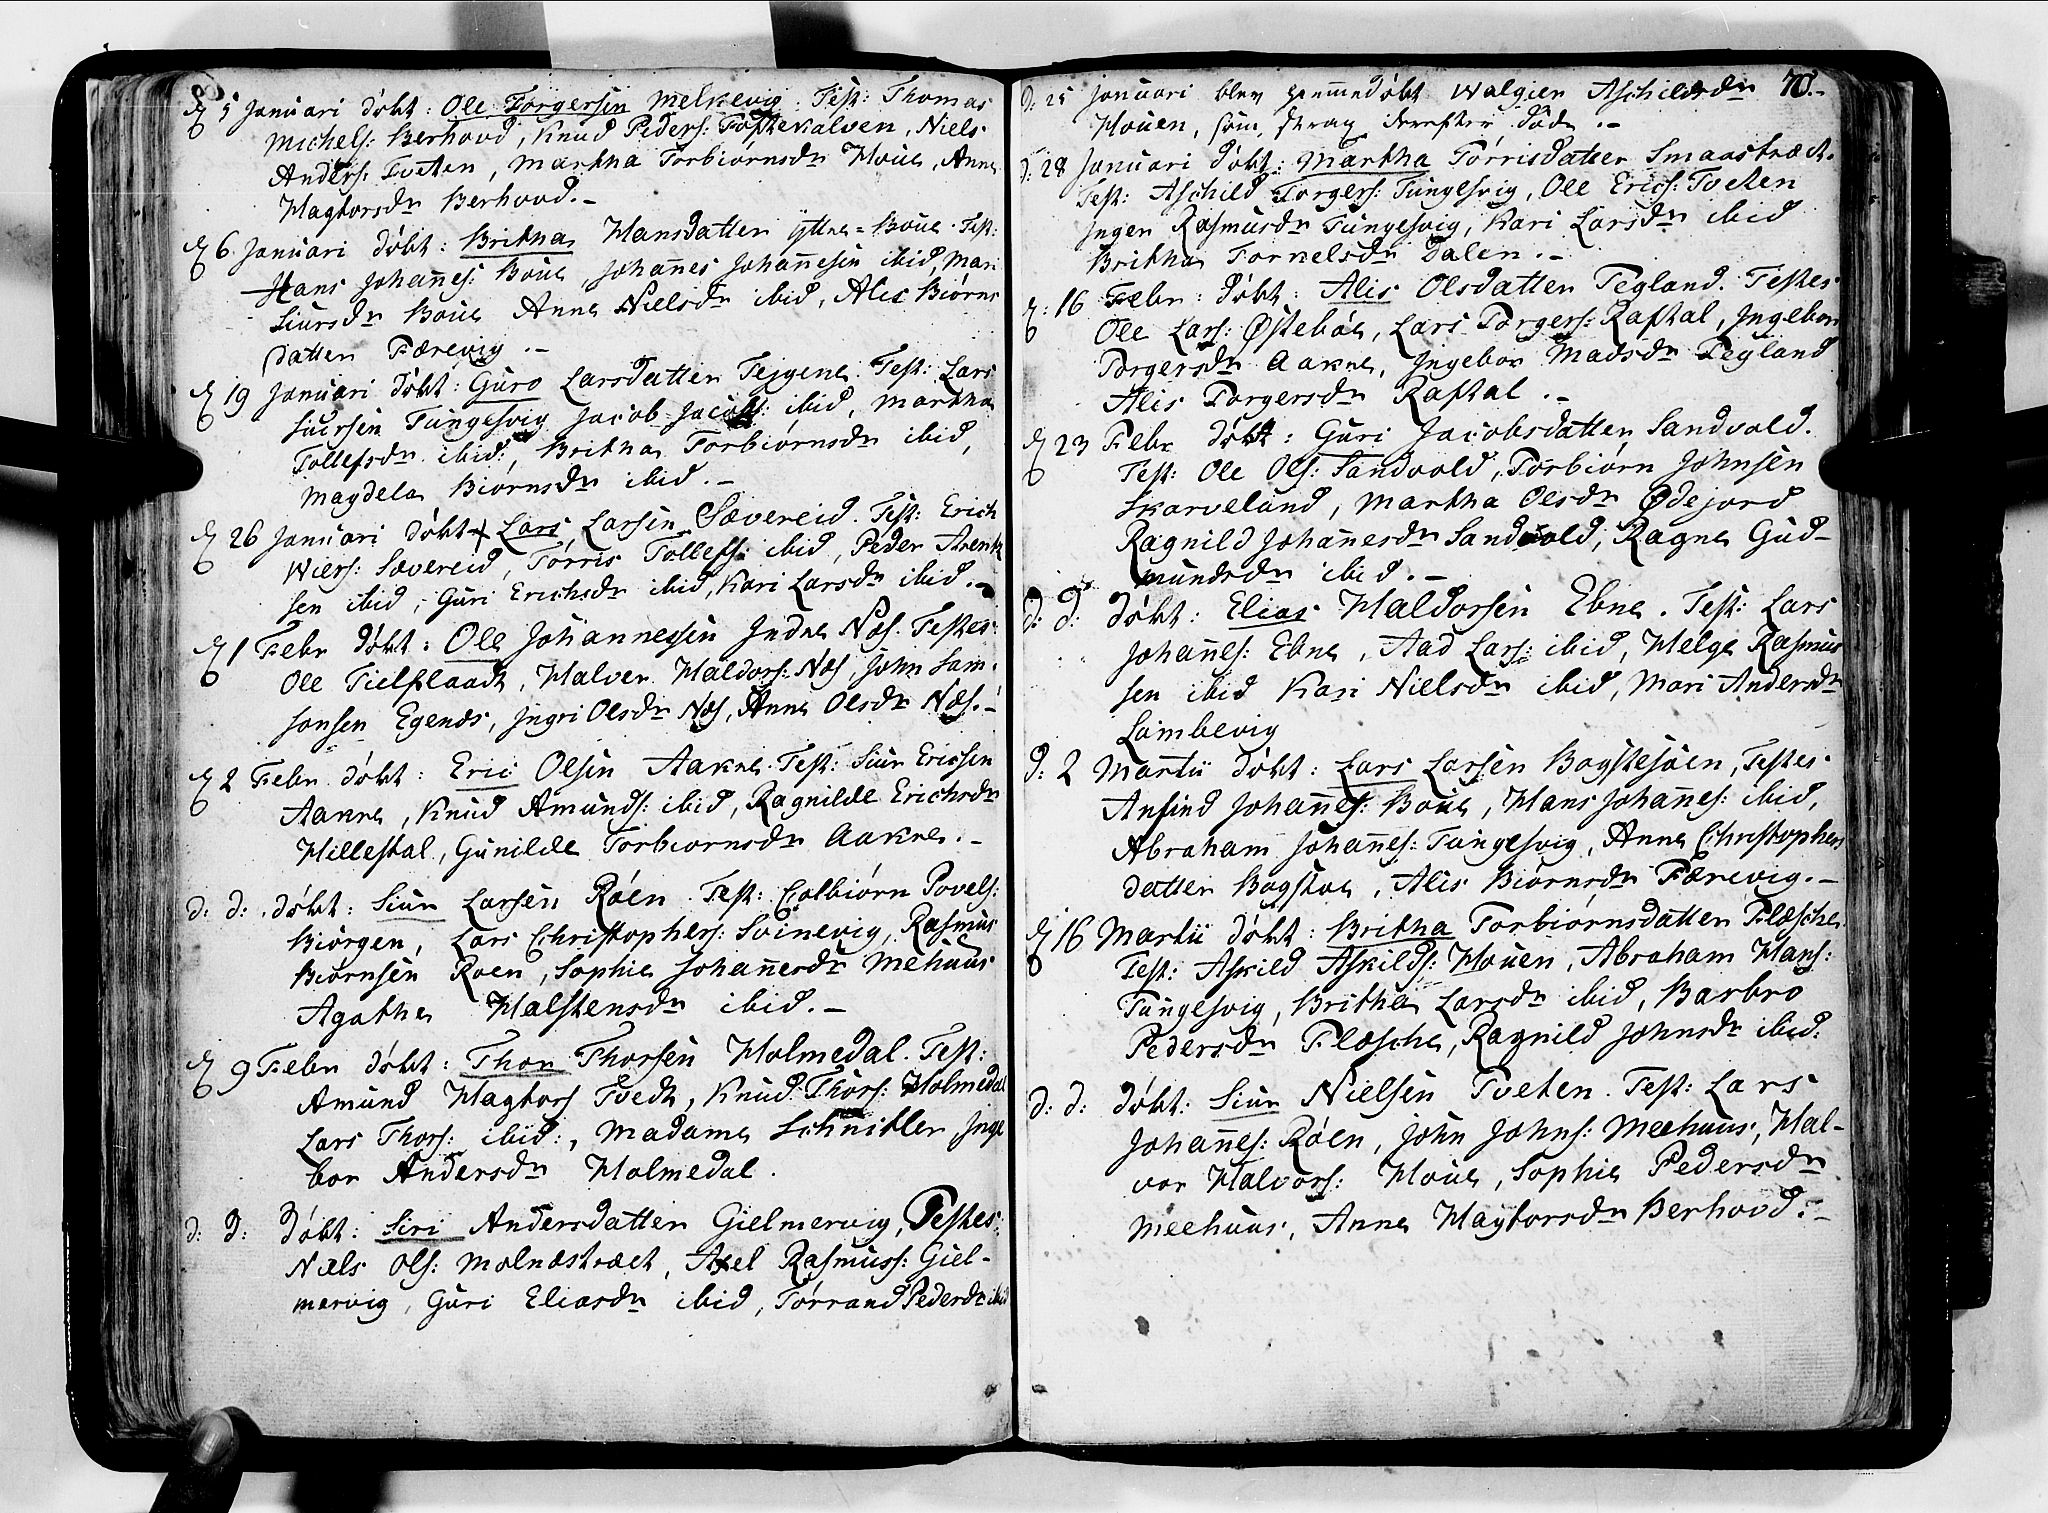 5 Januari döbt: Ole Torgersen Melkevig. Test: Thomas
Michels: Berhovd, Knud Peders: Toftekalven, Niels
Anders: Tveten, Martha Torbiörnsdr Houe, Anne
Hagtorsdr Berhovd.-
6 Januari döbt: Britha Hansdatter Yttre=Boue. Test:
Hans Johañes: Boue, Johañes Johañesen ibid, Mari
Siursdr Boue Anne Nielsdr ibid, Alis Biörns
datter Færevig.-
19 Januari döbt: Guro Larsdatter Tejgene. Test: Lars
Siursen Tungesvig Jacob Jacobs: ibid, Martha
Tollefsdr ibid:, Britha Torbiörnsdr ibid,
Magdela Biörnsdr ibid.-
26 Januari döbt Lars Larsen Sævereid. Test: Erich
Wiers: Sævereid, Törris Tollefs: ibid, Peder Arent
sen ibid, Guri Erichsdr ibid, Kari Larsdr ibid.-
1 Febr döbt: Ole Johannessen Indre Næs. Testes:
Ole Tielflaadt, Halver Haldors: Næs, John Sam-
sonsen Egenæs, Ingri Olsdr Næs, Anne Olsdr Næs.-
2 Febr döbt: Eric Olsen Aakre. Test: Siur Ericsen
Aakre, Knud Amunds: ibid, Ragnilde Erichsdr
Hillestal, Gunilde Torbiornsdr Aakre.-
d: d: döbt: Siur Larsen Röen. Test: Colbiörn Povels:
Biörgen, Lars Christophers: Svinevig, Rasmus
Biörnsen Roen, Sophie Johañesdr Mehuus
Agathe Halstensdr ibid.-
9 Febr döbt: Thor Thorsen Holmedal. Test:
Amund Hagtors Tvedt, Knud Thors: Holmedal
Lars Thors: ibid:, Madame Schnitler Inge
bor Andersdr Holmedal.
d: d: döbt: Siri Andersdatter Gielmervig, Testes:
Næls Ols: Molnæstræet, Axel Rasmuss: Giel-
mervig, Guri Eliasdr ibid, Törrand Pedersdr ibid
70.-
d: 25 Januari blev hiemmedöbt Walgier Aschildsdr
Houen, som strax derefter döde.-
d: 28 Januari döbt: Martha Törrisdatter Smaastræet.
Test: Aschild Torgers: Tungesvig, Ole Erics: Tveten
Inger Rasmusdr Tungesvig, Kari Larsdr ibid
Britha Torkelsdr Dalen.-
16 Febr: döbt: Alis Olsdatter Tegland. Testes
Ole Lars: Östeböe, Lars Torgers: Raftal, Ingebor
Torgersdr Aakre, Ingebor Madsdr Tegland
Alis Torgersdr Raftal.-
23 Febr döbt: Guri Jacobsdatter Sandvold.
Test: Ole Ols: Sandvold, Torbiörn Johnsen
Skarveland, Martha Olsdr Ödejord
Ragnild Johañesdr Sandvold, Ragne Gud-
mundsdr ibid.-
d: d: döbt: Elias Haldorsen Ebne. Test: Lars
Johañes: Ebne, Aad Lars: ibid, Helge Rasmus
sen ibid Kari Nielsdr ibid, Mari Andersdr
Lambevig
d: 2 Martii döbt: Lars Larsen Bogstesöen, Testes.
Anfind Johañes: Boue, Hans Johañes: ibid,
Abraham Johañes: Tungesvig, Anne Christophers
datter Bogstoe, Alis Biörnsdr Færevig.-
16 Martii döbt: Britha Torbiörnsdatter Flæsche
Test: Askild Askilds: Houen, Abraham Hans:
Tungesvig, Britha Larsdr ibid, Barbro
Pedersdr Flæsche, Ragnild Johnsdr ibid.
d: d: döbt: Siur Nielsen Tveten. Test: Lars
Johañes: Röen, John Johns: Meehuus, Hal-
vor Halvors: Houe, Sophie Pedersdr
Meehuus, Anne Hagtorsdr Berhovd.-